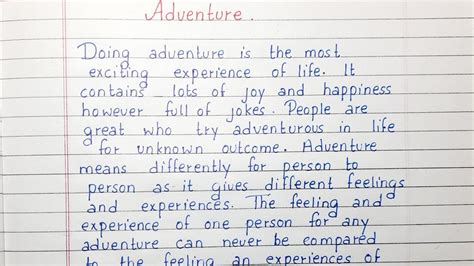 Adventure.
Doing adventure is the most
exciting experience of life. It
contains lots of joy and happiness
however full of jokes. People are
great who try adventurous in life
for unknown outcome. Adventure
means differently for person to
person as it gives different feelings
and experiences. The feeling and
experience of one person for any
adventure can never be compared
to the feeling an experiences of